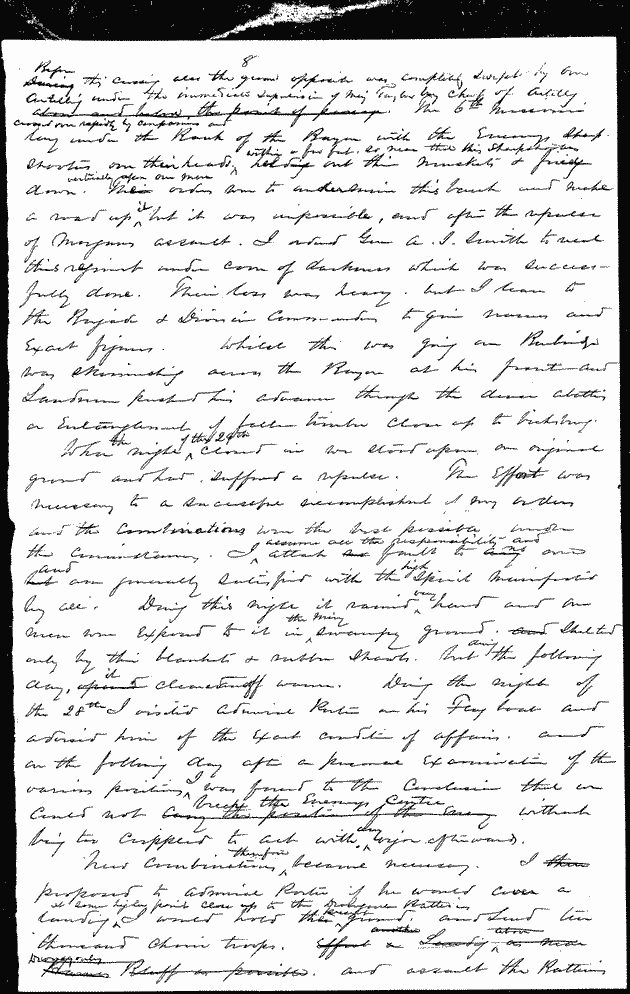 8
Before
During this crossing also the ground opposite was completely swept by our
artillery under the immediate supervision of Maj Taylor my chief of artillery
above and below the point of passage. The 6th Missouri
crossed over rapidly by companies and
lay under the Bank of the Bayou with the Enemys Sharp-
within a few feet. so near that the sharpshooters
shooters over their heads, held out their muskets & fired
vertically upon our men
down. Their orders were to undermine this bank and make
a road up it but it was impossible, and after the repulse
of Morgans assault. I ordered Gen A. J. Smith to recal
this regiment under cover of darkness which was success-
fully done. Their loss was heavy. but I leave to
the Brigade & Division Commanders to give names and
Exact figures. Whilst this was going on Burbridge
was skirmishing across the Bayou at his front and
Landrum pushed his advance through the dense abattis
or Entanglement of fallen timber close up to Vicksburg.
When the night of the 29th closed in we stood upon our original
ground and had suffered a repulse. The Effort was
necessary to a successful accomplishment of my orders
and the combinations were the best possible under
assume all the responsibility and
the circumstances. I attach no fault to any one
and
but am generally satisfied with the high Spirit manifested
by all. During this night it rained very hard and our
men were Exposed to it in the miry swampy ground. and Sheltered
only by their blankets & rubber Shawls. but during the following
day, it cleared off warm. During the night of
the 28th I visited Admiral Porter on his Flag boat and
advised him of the Exact condition of affairs. and
on the following day after a personal Examination of the
various positions I was forced to the Conclusion that we
break the Enemys Centre
could not carry the position of the Enemy without
being too crippled to act with any vigor afterwards.
New Combinations therefore became necessary. I then
proposed to admiral Porter if he would cover a
at some higher point close up to the Batteries
landing I would hold this present ground. and Send ten
thousand choice troops. as near
Bluff as possible. and assault the Batteries